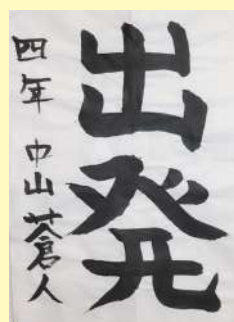 出発
四年 中山蒼人